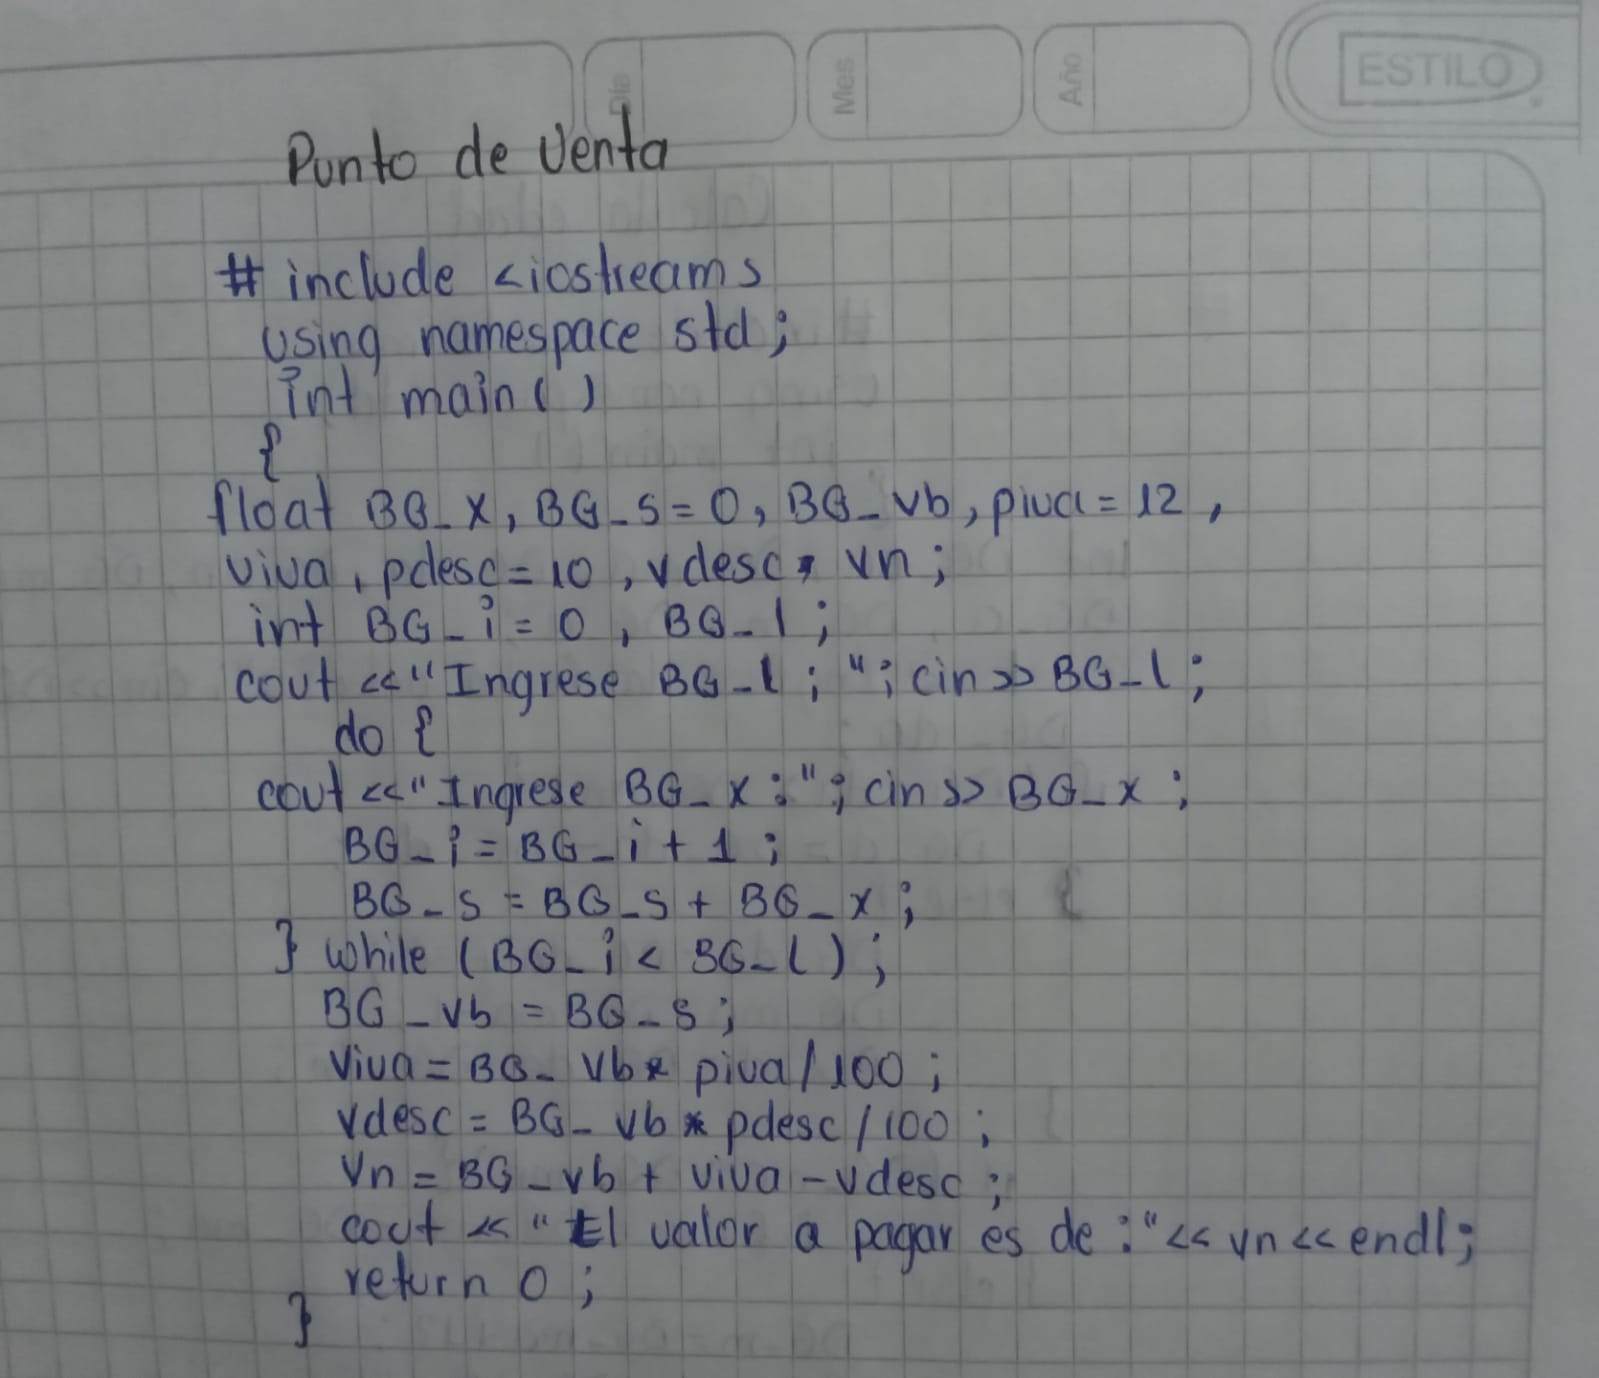 Día Mes Año ESTILO
Punto de Venta
# include <iostream>
using namespace std;
int main()
{
float BG_x, BG_s=0, BG_vb, piva=12,
viva, pdesc=10, vdesc, vn;
int BG_i=0, BG_l;
cout <<"Ingrese BG_l ; "; cin>> BG_l;
do {
cout <<"Ingrese BG_x :"; cin >> BG_x ;
BG_i = BG_i + 1 ;
BG_s = BG_s + BG_x ;
} while (BG_i < BG_l) ;
BG_vb = BG_s ;
viva = BG_vb * piva/100 ;
vdesc = BG_vb * pdesc/100 ;
Vn = BG_vb + viva - vdesc ;
cout << "El valor a pagar es de :"<< vn << endl;
return 0 ;
}